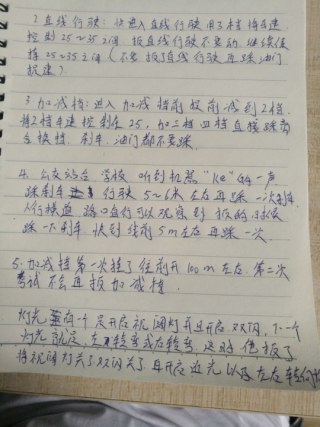 2 直线行驶: 快进入直线行驶 用了2档 车速
控到 25~35之间 报直线行驶不要动 继续保
持 25~35之间 (不要报了直线行驶再踩油门
提速)
3 加减档: 进入加减档前 提前减到2档
将2档车速控制在 25, 加三档四档直接踩离
合换档. 刹车. 油门都不要踩.
4. 公交站台 学校 听到机器 "ke" 的一声
踩刹车 行驶 5~6米左右再踩一次刹车
人行横道 路口直行可以观察到 报的时候
踩一下刹车 快到线前 5m左右 再踩一次.
5. 加减档第一次挂了往前开 100m 左右. 第二次
考试不会再报加减档.
灯光 有一个是开启视阔灯并且开启双闪, 下一个
灯光就是 左转弯或右转弯, 这时 他报了
将视阔灯关了 双闪关了 再开启近光 以及左右转向灯